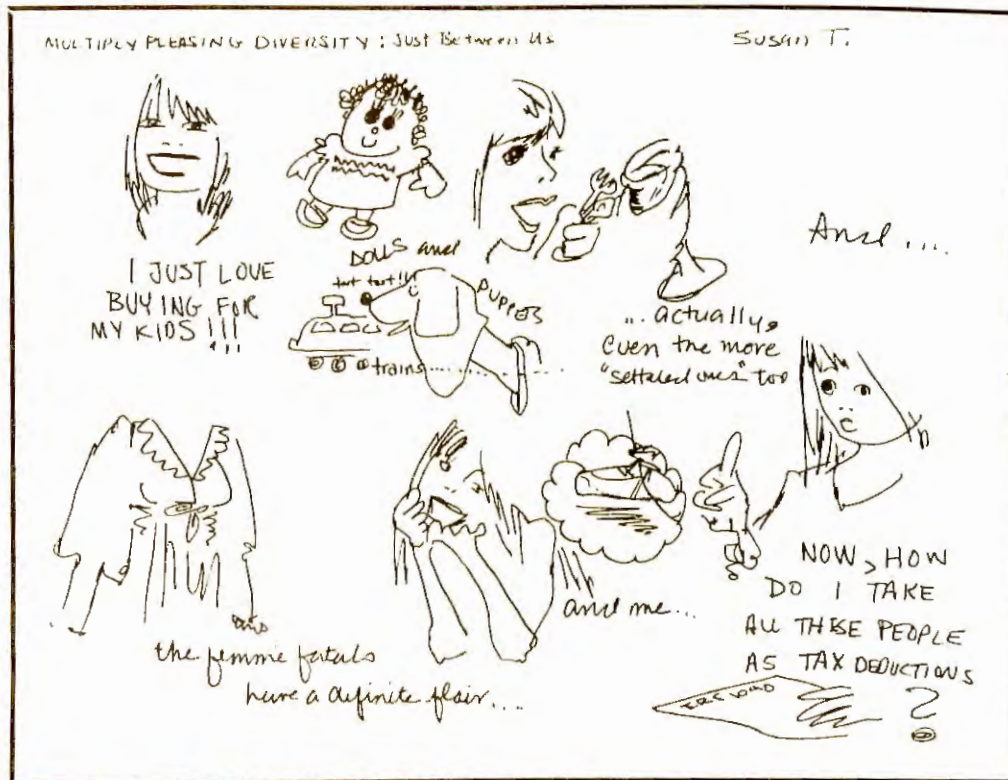 MULTIPLY PLEASING DIVERSITY : Just Between Us
Susan T.
I JUST LOVE
BUYING FOR
MY KIDS !!!
DOLLS and
toot toot!!!
PUPPETS
trains..............
And....
... actually,
even the more
"settled ones" too
the femme fatals
have a definite flair....
and me...
NOW, HOW
DO I TAKE
ALL THESE PEOPLE
AS TAX DEDUCTIONS
?